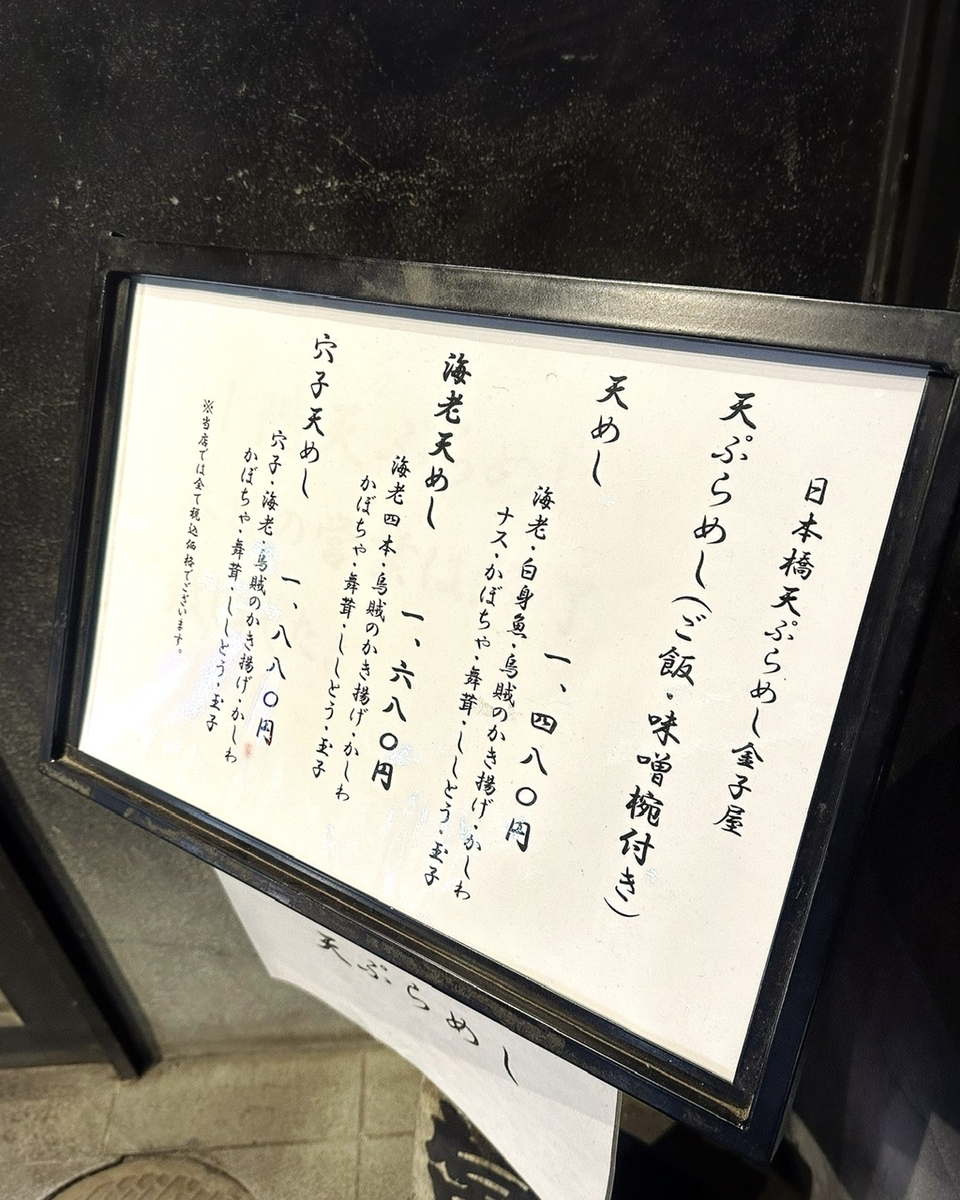 日本橋天ぷらめし金子屋
天ぷらめし(ご飯・味噌椀付き)
天めし
一、四八〇円
海老・白身魚・烏賊のかき揚げ・かしわ
ナス・かぼちゃ・舞茸・ししとう・玉子
海老天めし
一、六八〇円
海老四本・烏賊のかき揚げ・かしわ
かぼちゃ・舞茸・ししとう・玉子
穴子天めし
一、八八〇円
穴子・海老・烏賊のかき揚げ・かしわ
かぼちゃ・舞茸・ししとう・玉子
※当店では全て税込価格でございます。
天ぷらめし